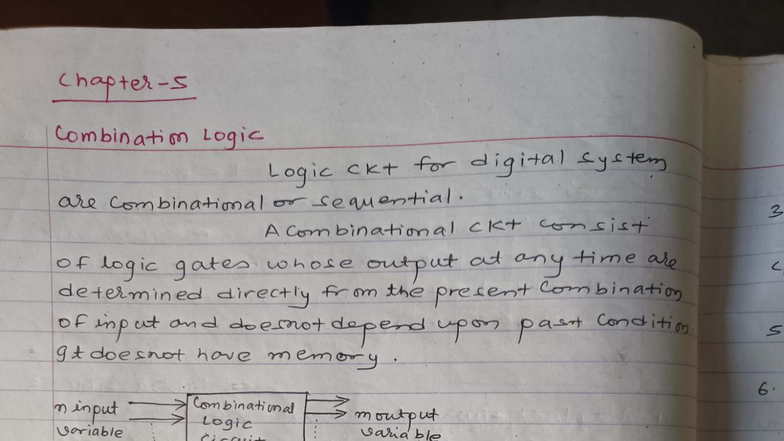 Chapter-5
Combination Logic
Logic ckt for digital system
are combinational or sequential.
A combinational ckt consist
of logic gates whose output at any time are
determined directly from the present combination
of input and doesnot depend upon past condition
It doesnot have memory.
n input
variable
Combinational
Logic
circuit
m output
variable
3
5
6.